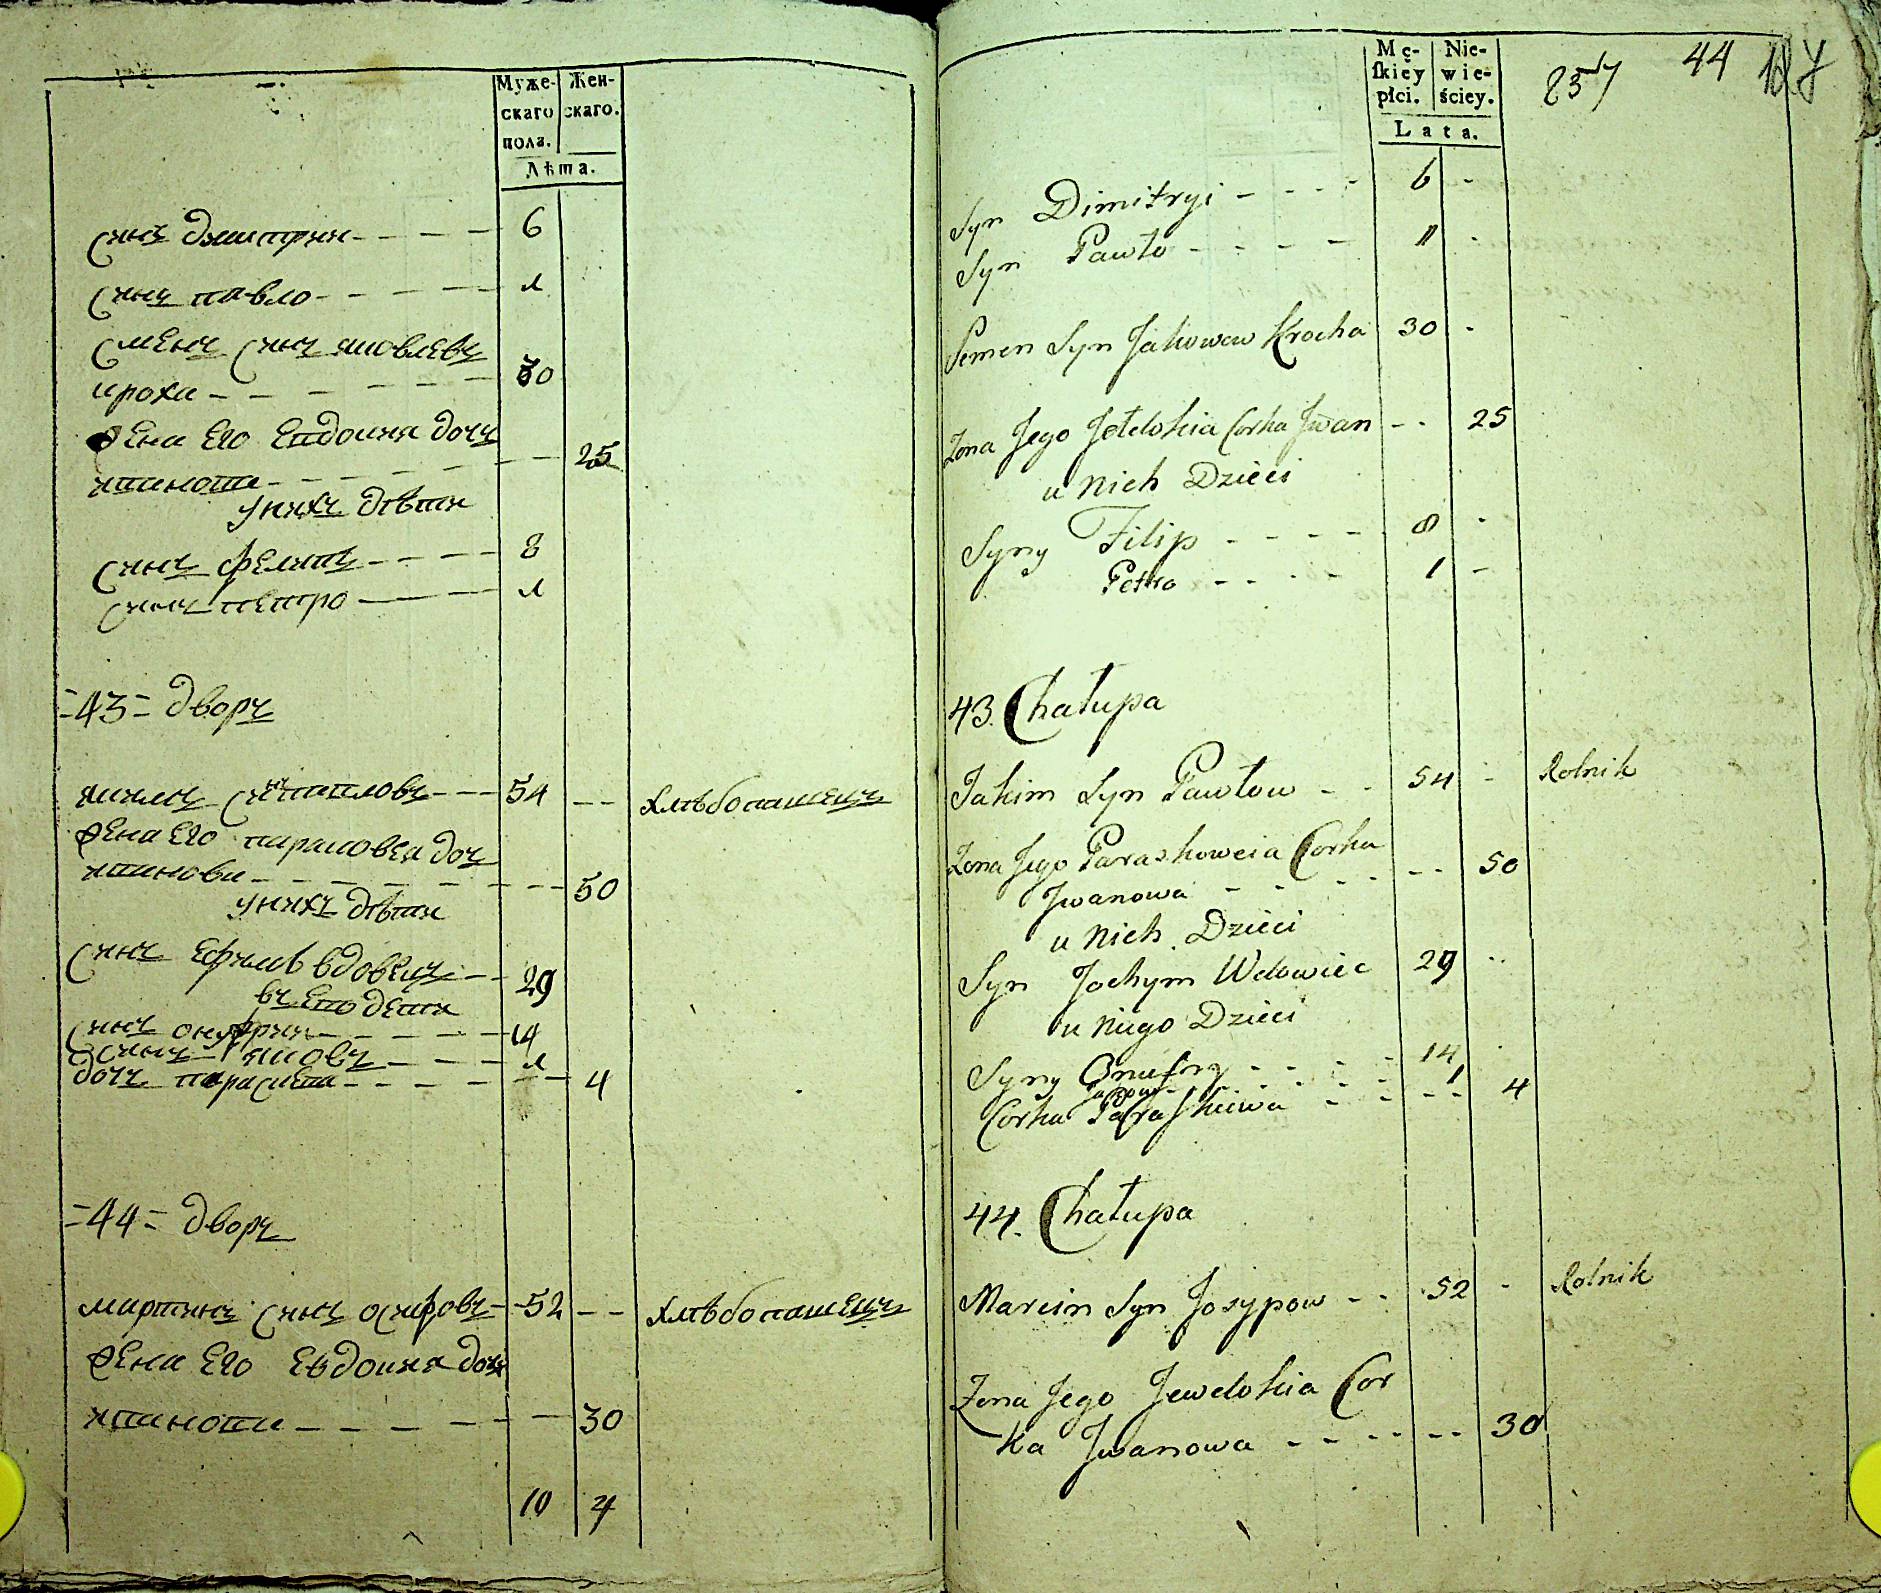 Муже-
скаго
пола.
Жен-
скаго.
Лѣта.
Сынъ дмитрии - - - - 6
Сынъ павло - - - - 1
Сменъ Сынъ яковлевъ
кроха - - - - 30
Жена Его Евдокия дочъ
иванова - - - - 25
у нихъ дѣти
Сынъ фелипъ - - - - 8
Сынъ петро - - - - 1
=43= дворъ
якимъ Сынъ павловъ - - - 54 - - хлѣбопашецъ
Жена Его парасковея дочъ
иванова - - - - - - 50
у нихъ дѣти
Сынъ ефимъ вдовецъ - - 29
въ Его дети
Сынъ онуфрии - - - - - 14
Сынъ яковъ - - - - 1
дочъ параскева - - - - - 4
=44= дворъ
мартинъ Сынъ осиповъ - - 52 - - хлѣбопашецъ
Жена Его Евдокия дочъ
иванова - - - - - - 30
10 4
Mę-
ſkiey
płci.
Nie-
wie-
ściey.
Lata.
257 44
Syn Dimitryi - - - - 6 -
Syn Pawło - - - - 1 -
Semen Syn Jakowow Krocha 30 -
Zona Jego Jewdokia Corka Jwan - - 25
u nich Dzieci
Syny Filip - - - - - 8 -
Petro - - - - 1 -
43. Chałupa
Jakim Syn Pawłow - - 54 - Rolnik
Zona Jego Paraskoweia Corka
Jwanowa - - - - - - 50
u nich Dzieci
Syn Jochym Wdowiec 29 - -
u niego Dzieci
Syny Onufry - - - - 14 -
Jakow - - - - - - 1
Corka Paraſkiewa - - - - - 4
44. Chałupa
Marcin Syn Josypow - - 52 - Rolnik
Zona Jego Jewdokia Cor
ka Jwanowa - - - - - - 30